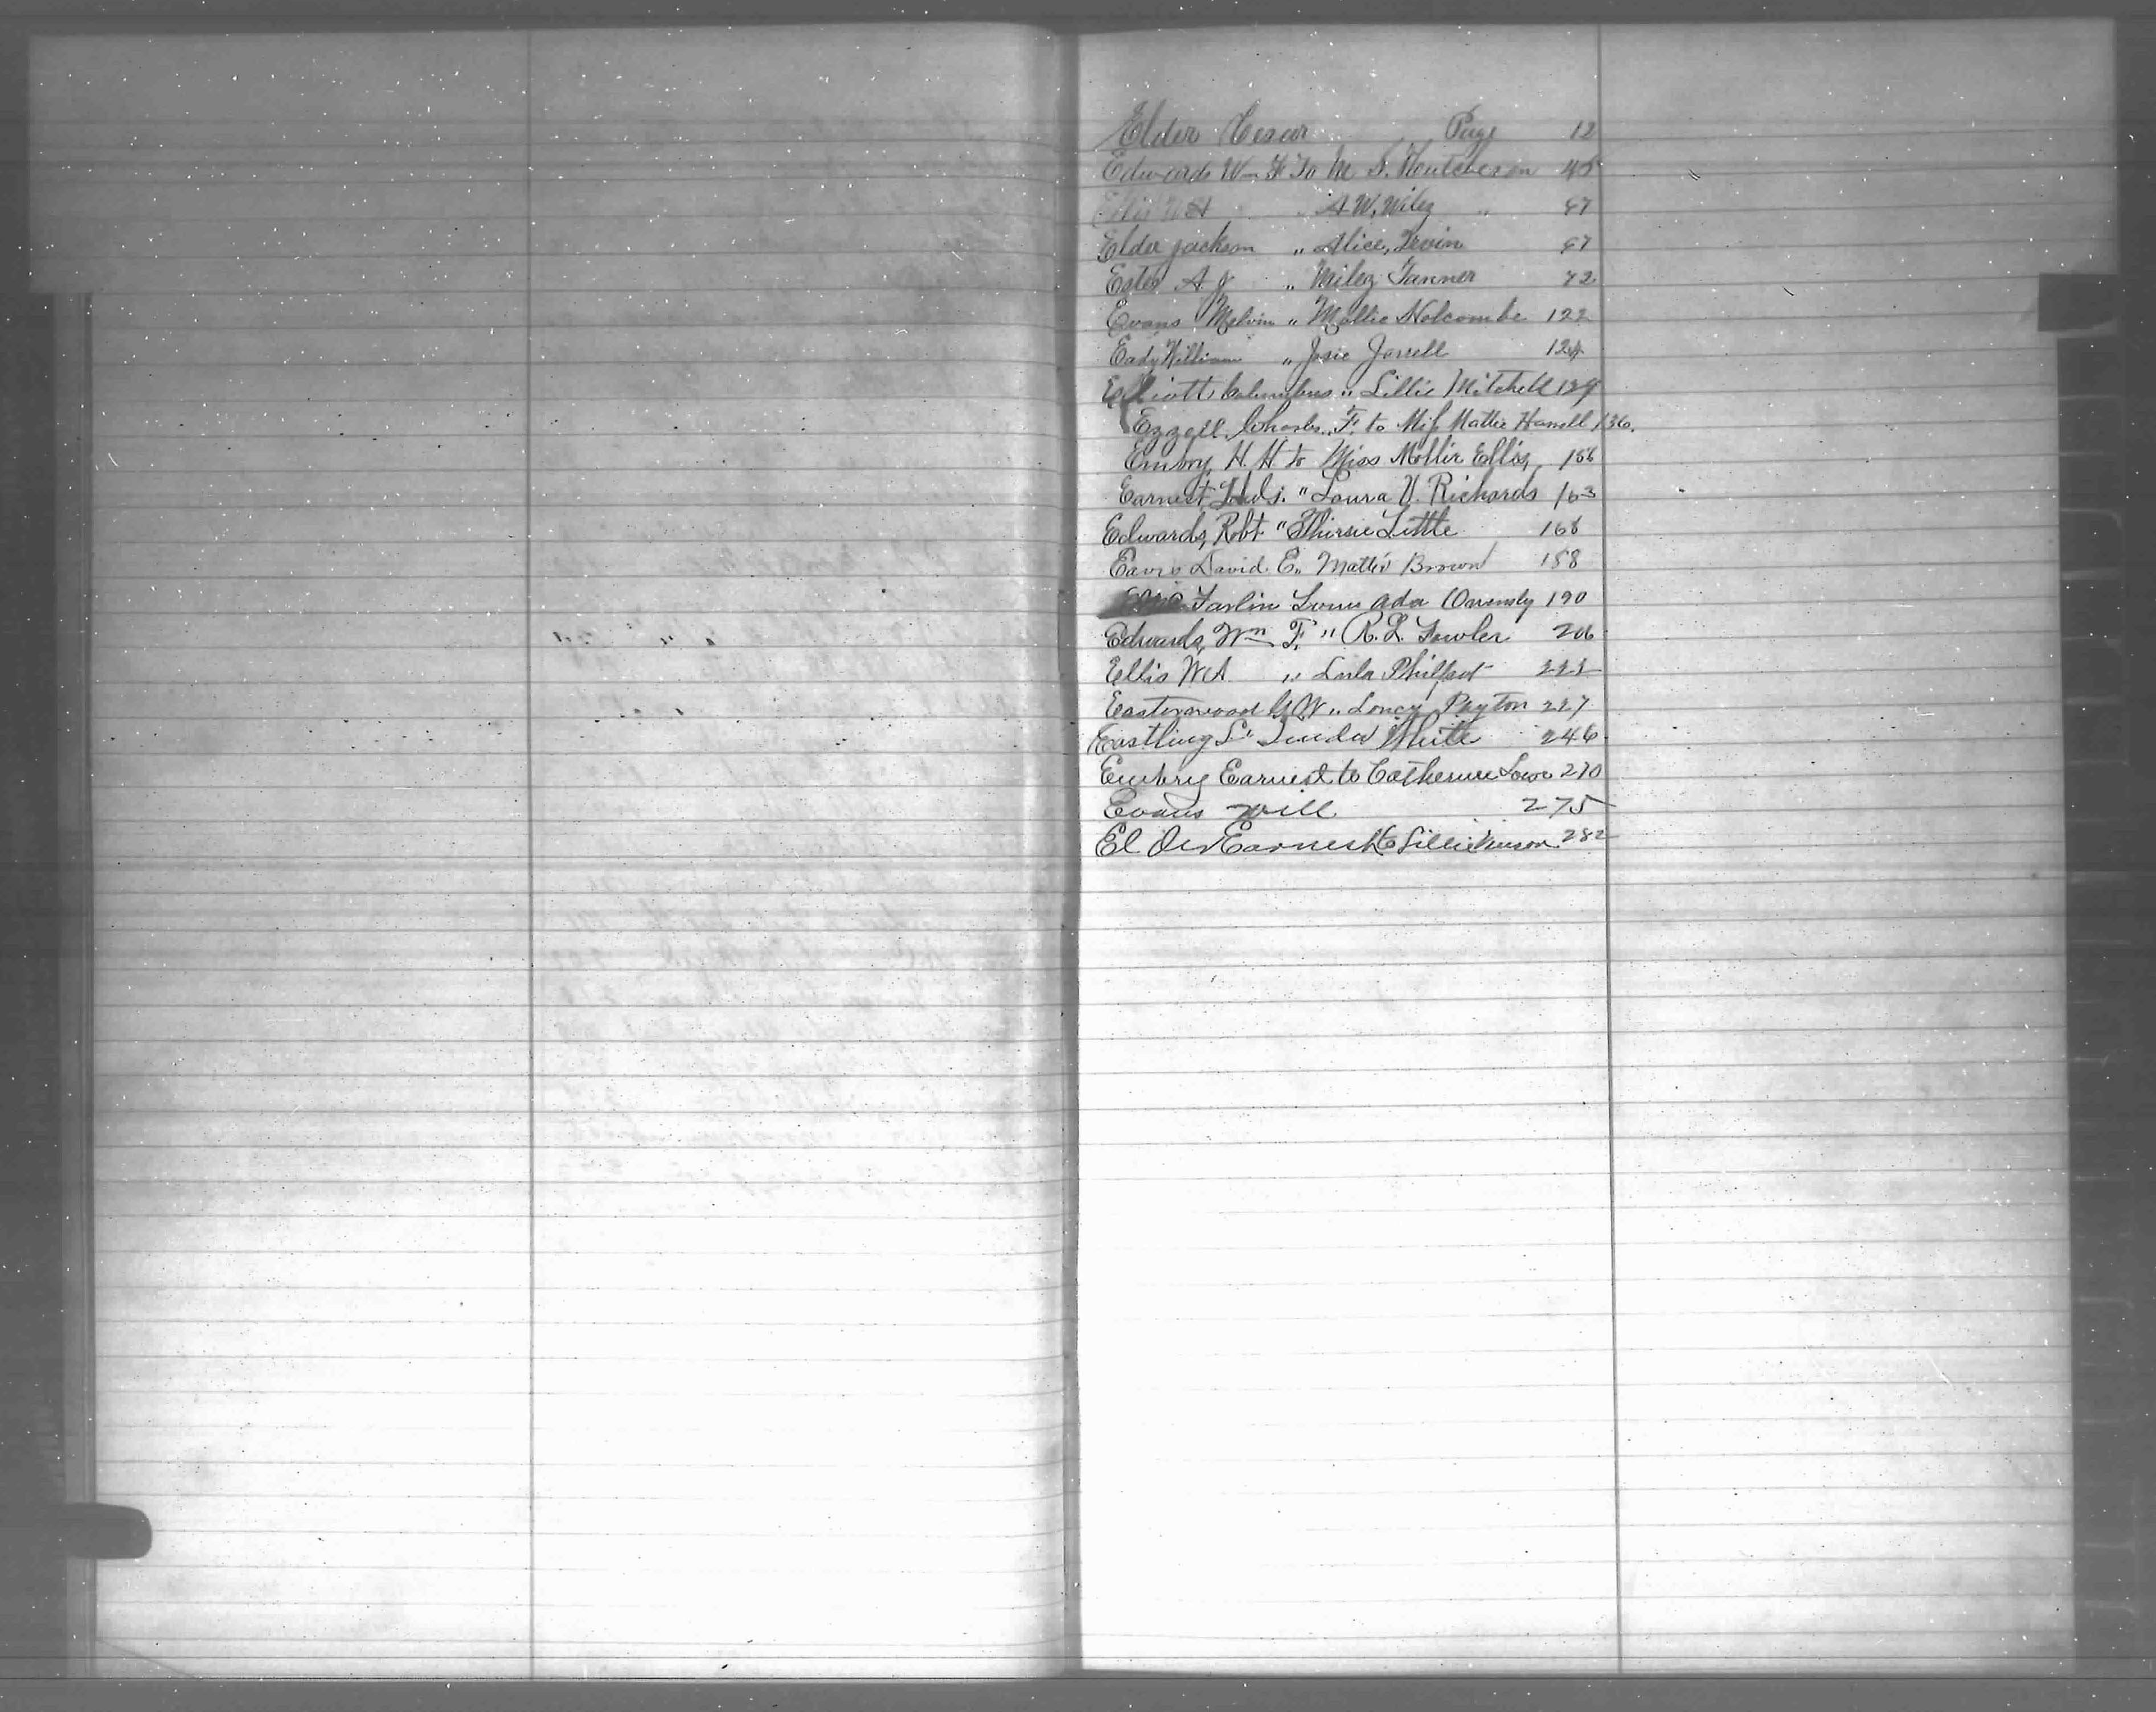 Elder Cesar Page 12
Edwards Wm F To M S. Houtcheson 45
Ellis W A A W. Wiley "
Elder Jackson " Alice, Irvin
Estes A J " Miley Tanner 72
Evans Melvin " Mollie Holcombe 122
Eady William " Josie Jarrell 124
Elliott Columbus " Lillie Mitchell 129
Ezzell Charles. F. to Miss Mattie Harrell 136.
Embry, H. H. to Miss Mollie Ellis, 156
Earnest, " Laura V. Richards 163
Edwards, Robt " Thirsie Little 166
David E. " Mattie Brown 188
Farlin Ada 190
Edwards, Wm F. " R. L. Fowler 206
Ellis W A " Philpot 223
Easterwood G W " Loncy Payton 227
Eastling L " Linda White 246
Embry Earnest to Catherine Love 270
Evans Will 275
El Der Earnest to 282